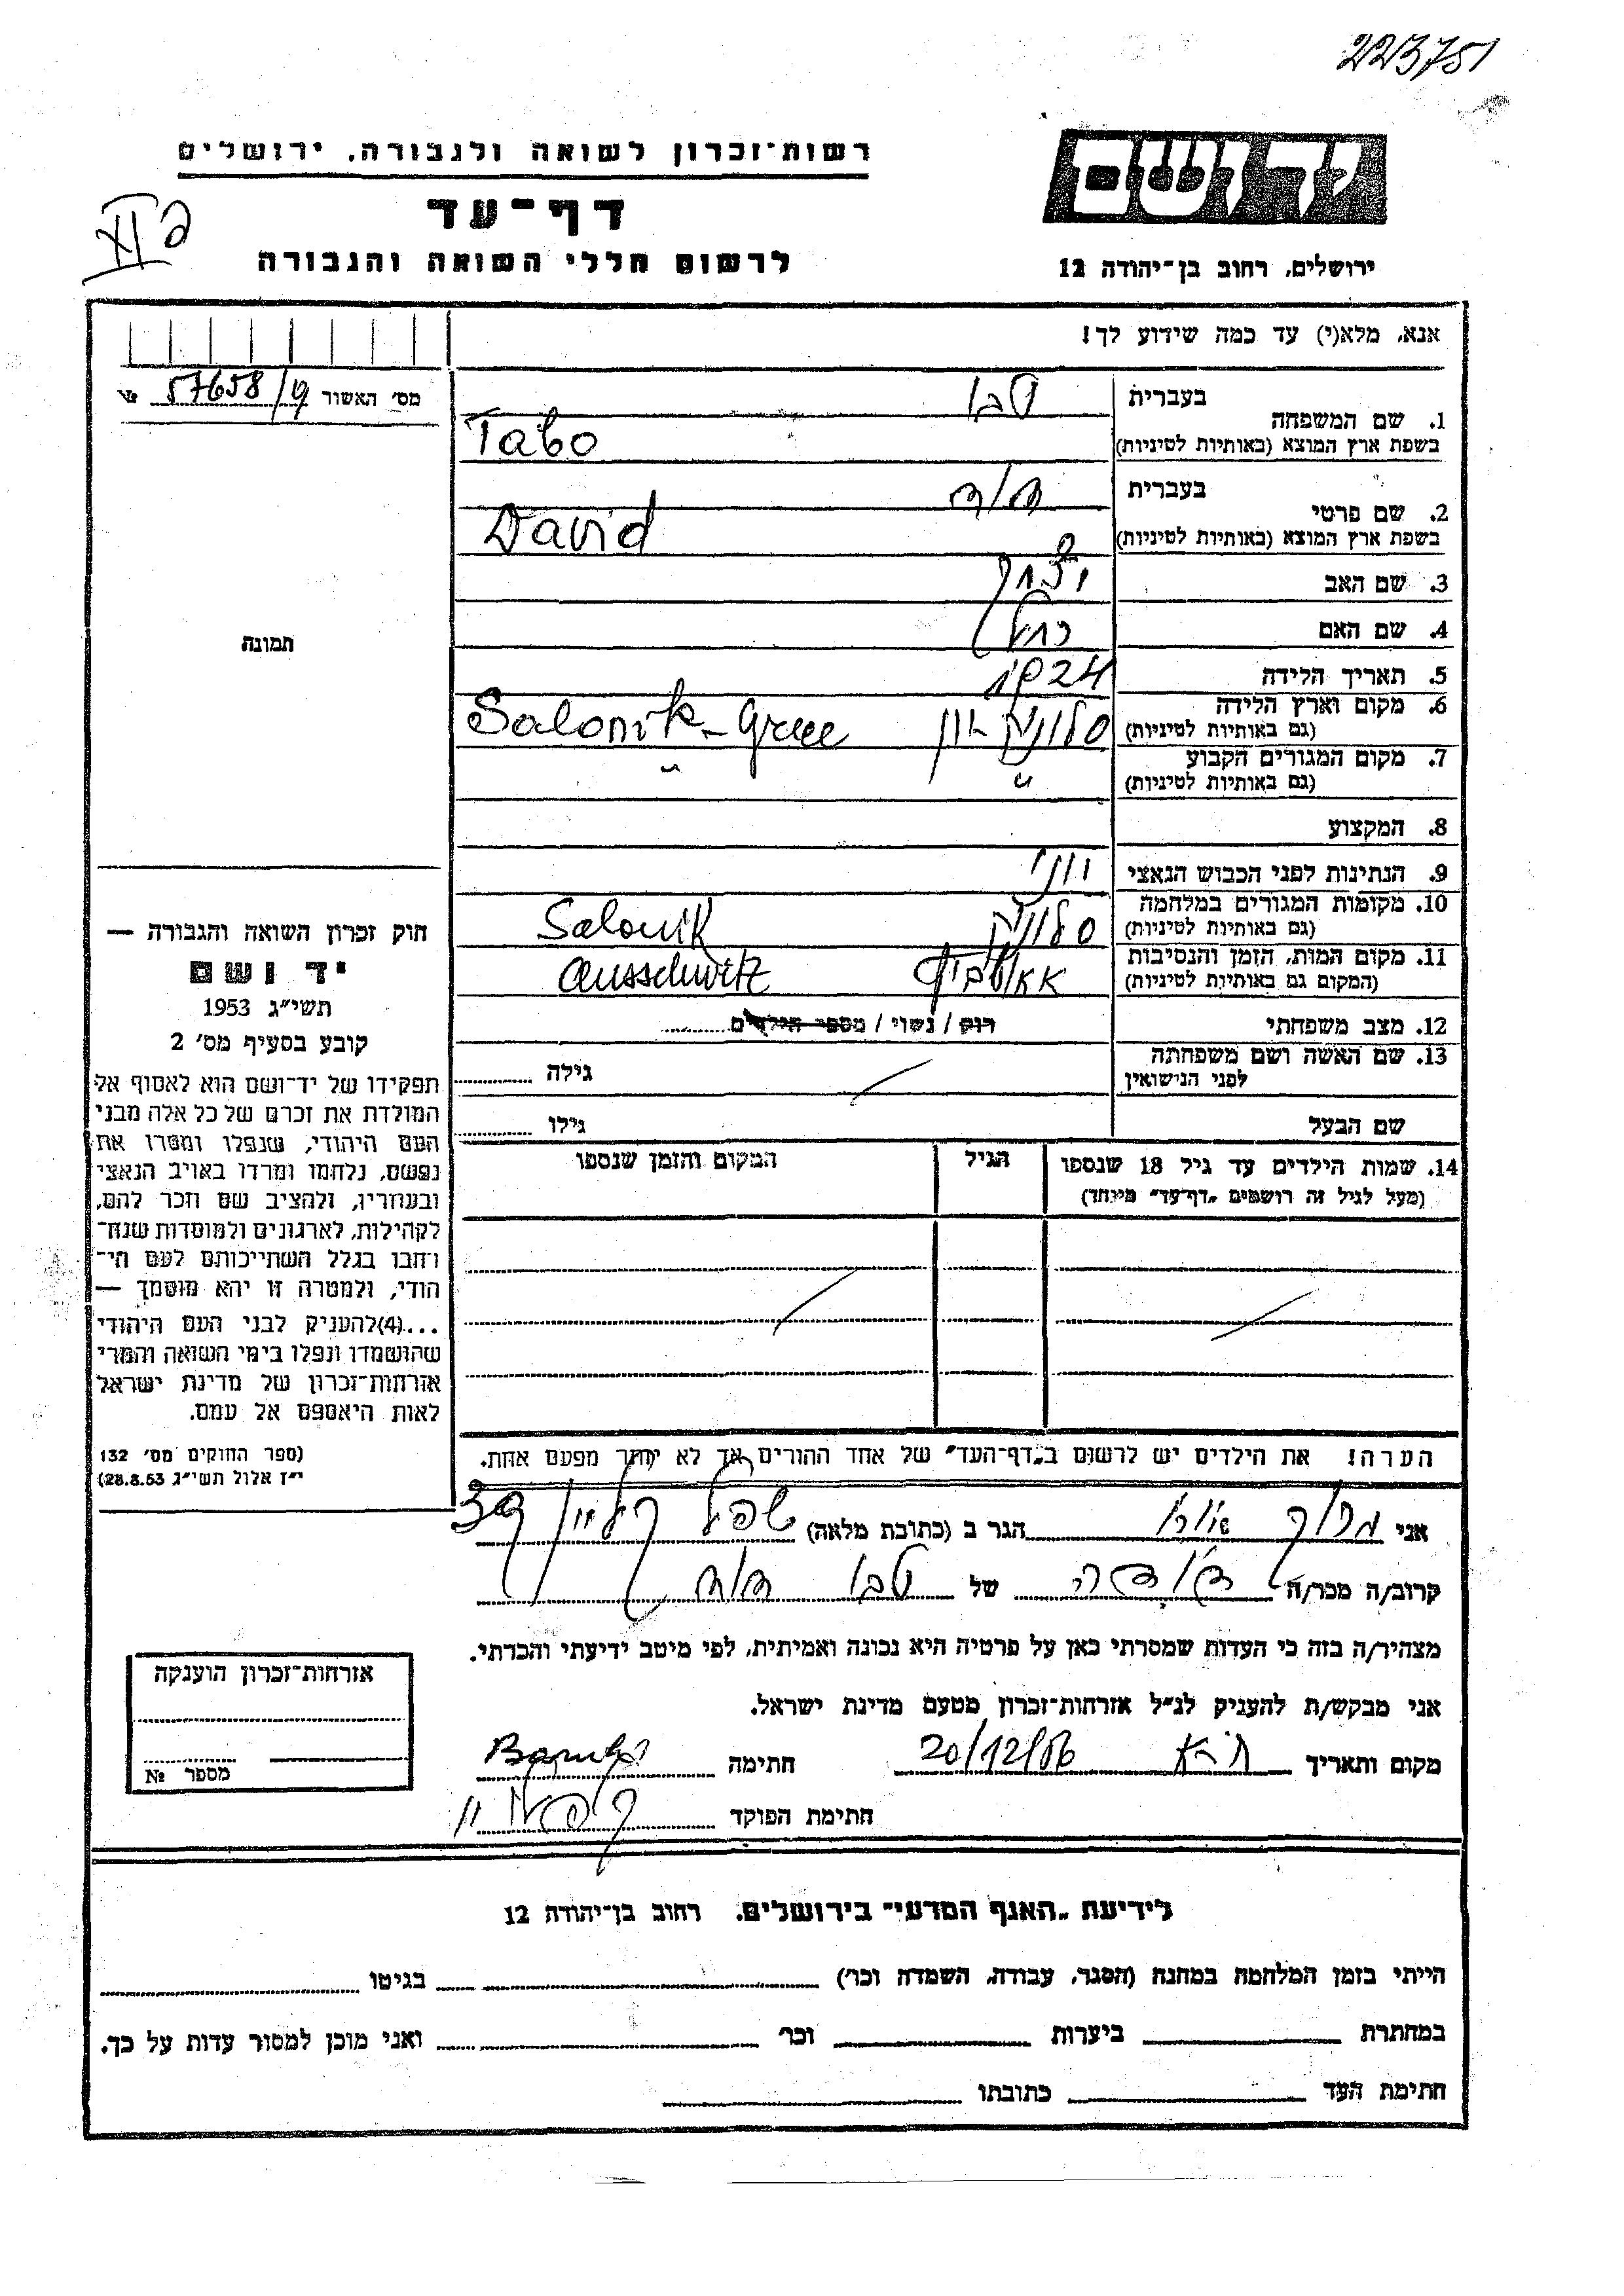 223751
רשות־זכרון לשואה ולגבורה, ירושלים
דף־עד
לרשום חללי השואה והגבורה
יד ושם
ירושלים, רחוב בן־יהודה 12
אנא, מלא(י) עד כמה שידוע לך!
מס׳ האשור 57658/
1. שם המשפחה
בעברית טבו
בשפת ארץ המוצא (באותיות לטיניות) Tabo
2. שם פרטי
בעברית דוד
בשפת ארץ המוצא (באותיות לטיניות) David
3. שם האב יצחק
4. שם האם רחל
5. תאריך הלידה 1924
6. מקום וארץ הלידה
(גם באותיות לטיניות) סלוניק - יון Salonik - Grece
7. מקום המגורים הקבוע
(גם באותיות לטיניות) " "
8. המקצוע
9. הנתינות לפני הכבוש הנאצי יוני
10. מקומות המגורים במלחמה
(גם באותיות לטיניות) סלוניק Salonik
11. מקום המות, הזמן והנסיבות
(המקום גם באותיות לטיניות) Ausschwitz
12. מצב משפחתי רוק / נשוי / מספר הילדים
13. שם האשה ושם משפחתה
לפני הנישואין גילה
שם הבעל גילו
14. שמות הילדים עד גיל 18 שנספו הגיל המקום והזמן שנספו
(מעל לגיל זה רושמים „דף־עד״ מיוחד)
הערה! את הילדים יש לרשום ב„דף־העד״ של אחד ההורים אך לא יותר מפעם אחת.
תמונה
חוק זכרון השואה והגבורה —
יד ושם
תשי״ג 1953
קובע בסעיף מס׳ 2
תפקידו של יד־ושם הוא לאסוף אל
המולדת את זכרם של כל אלה מבני
העם היהודי, שנפלו ומסרו את
נפשם, נלחמו ומרדו באויב הנאצי
ובעוזריו, ולהציב שם וזכר להם,
לקהילות, לארגונים ולמוסדות שנח־
רבו בגלל השתייכותם לעם הי־
הודי, ולמטרה זו יהא מוסמך —
...(4)להעניק לבני העם היהודי
שהושמדו ונפלו בימי השואה והמרי
אזרחות־זכרון של מדינת ישראל
לאות היאספם אל עמם.
(ספר החוקים מס׳ 132
י״ז אלול תשי״ג 28.8.53)
אני ברוך הגר ב (כתובת מלאה) 39
קרוב/ה מכר/ה של טבו דוד
מצהיר/ה בזה כי העדות שמסרתי כאן על פרטיה היא נכונה ואמיתית, לפי מיטב ידיעתי והכרתי.
אני מבקש/ת להעניק לנ״ל אזרחות־זכרון מטעם מדינת ישראל.
מקום ותאריך ת״א 20/12/56 חתימה
חתימת הפוקד
אזרחות־זכרון הוענקה
מספר №
לידיעת „האגף המדעי״ בירושלים, רחוב בן־יהודה 12
הייתי בזמן המלחמה במחנה (הסגר, עבודה, השמדה וכו׳) בגיטו
במחתרת ביערות וכו׳ ואני מוכן למסור עדות על כך.
חתימת העד כתובתו